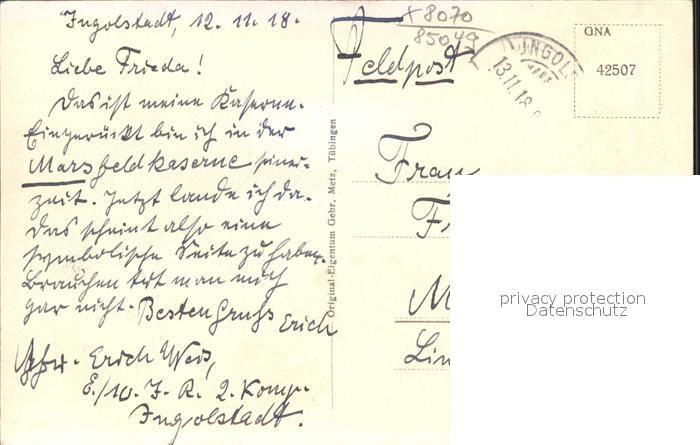 Ingolstadt, 12.11.18.
Liebe Frieda!
Das ist meine Kaserne.
Eingerückt bin ich in der
Marsfeldkaserne seiner-
zeit. Jetzt lande ich da.
Das scheint also eine
symbolische Seite zu haben.
Brauchen tut man mich
gar nicht. Besten Gruß
Erich
Erich Weis,
E./10. I. R. 2. Komp.
Ingolstadt.
Original-Eigentum Gebr. Metz, Tübingen
x8070
85049
Feldpost
INGOL
13.11.18
GNA
42507
Frau
Fr
M
Lin
privacy protection
Datenschutz